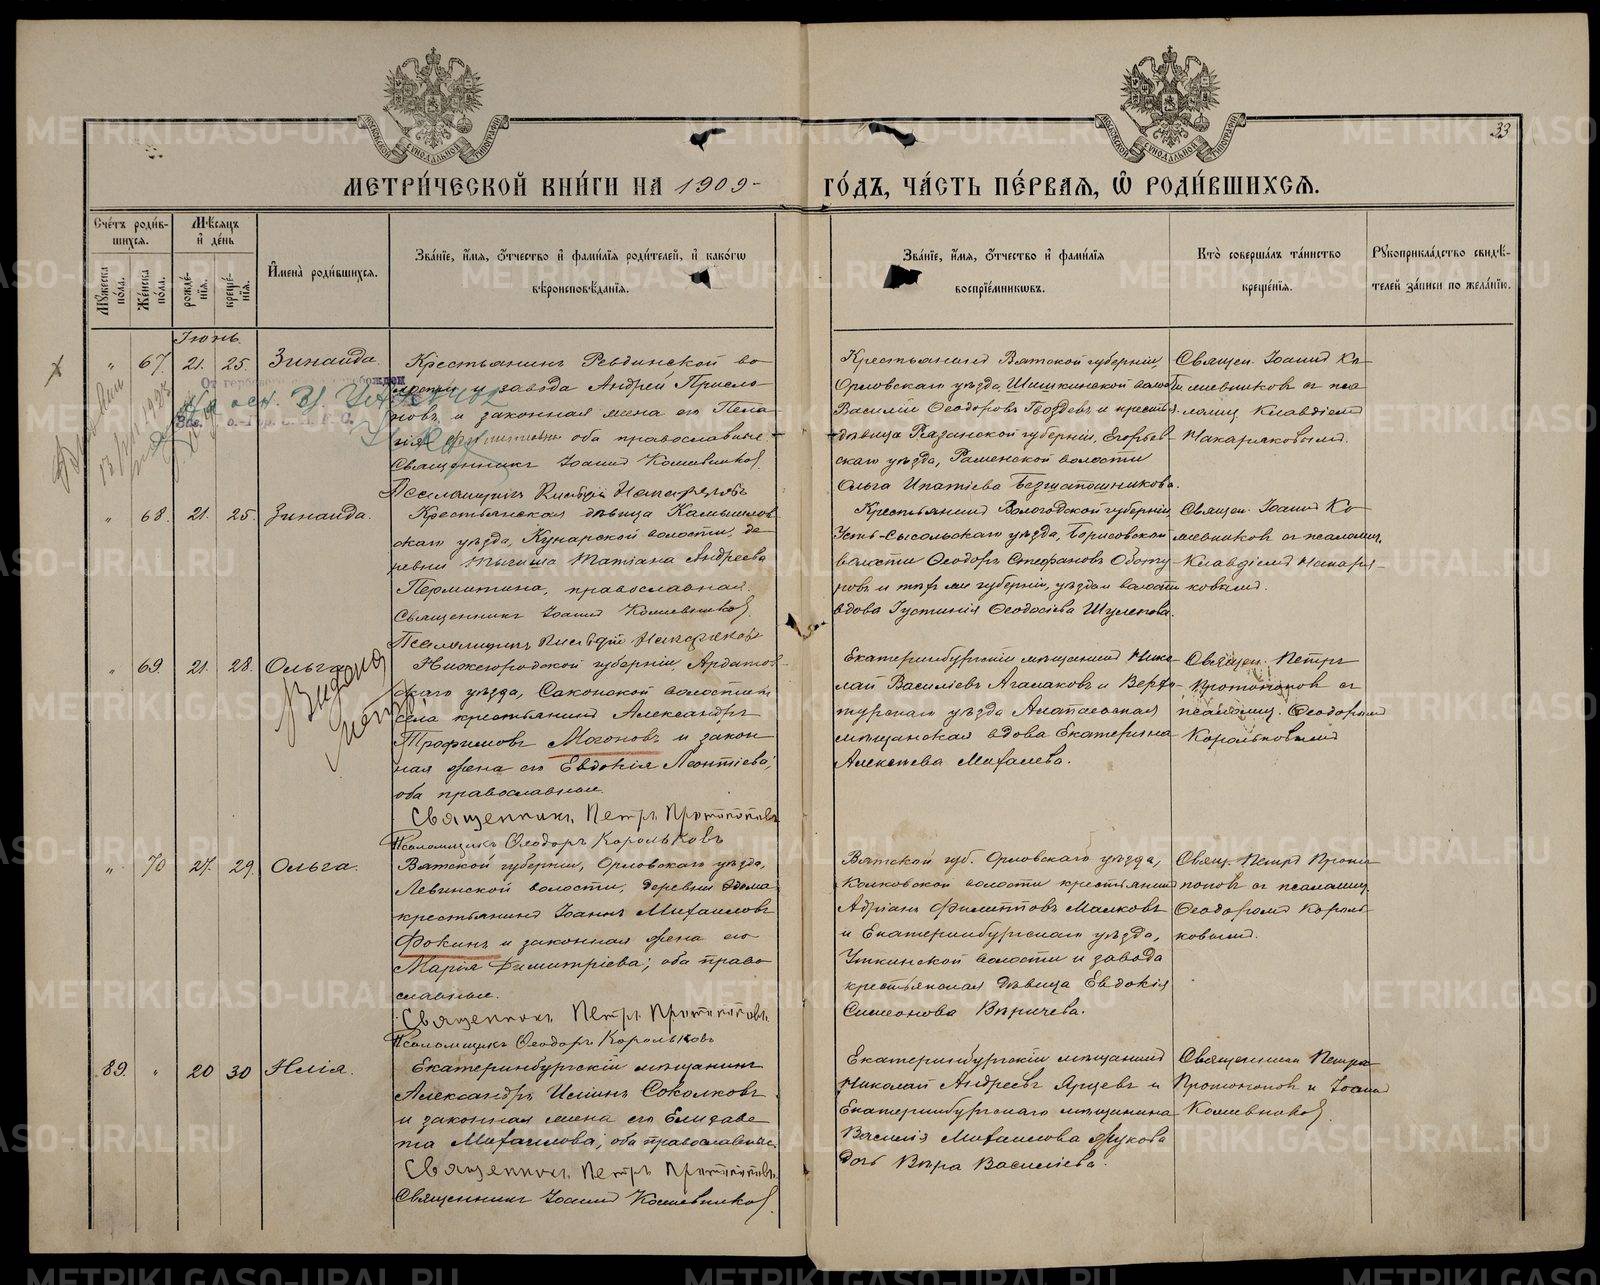 33
МЕТРИ́ЧЕСКОЙ КНИ́ГИ НА 1909 ГО́ДЪ, ЧА́СТЬ ПЕ́РВАЯ, Ѡ РОДИ́ВШИХСЯ.
Сче́тъ роди́в-
шихся.
Мꙋ́жеска по́ла.
Же́нска по́ла.
Мѣ́сяцъ и́ де́нь
рожде́-
нія.
креще́-
нія.
И҆мена̀ роди́вшихся.
Зва́ніе, и҆́мя, ѻ҆́тчество и҆ фами́лія роди́телей, и҆ како́гѡ
вѣроисповѣ́данія.
Зва́ніе, и҆́мя, ѻ҆́тчество и҆ фами́лія
воспріе́мникѡвъ.
Кто̀ соверша́лъ та́инство
креще́нія.
Рꙋкоприкла́дство свидѣ́-
телей за́писи по жела́нію.
Іюнь.
" 67. 21. 25. Зинаида
Крестьянинъ Ревдинской во-
лости и завода Андрей
и законная жена его
оба православные.
Священникъ Іоаннъ Кошевниковъ.
Псаломщикъ
Крестьянинъ Вятской губерніи,
Орловскаго уѣзда, Шишкинской волости
Василій Ѳеодоровъ Гвоздевъ и крестья-
дѣвица Рязанской губерніи, Егорьев-
скаго уѣзда, Раменской волости
Ольга Ипатіева
Священ. Іоаннъ Ко-
шевниковъ съ пса-
ломщ. Клавдіемъ
Макаряковымъ.
" 68. 21. 25. Зинаида.
Крестьянская дѣвица Камышлов-
скаго уѣзда, Кунарской волости, де-
ревни Татіана Андреева
Пермитина, православная.
Священникъ Іоаннъ Кошевниковъ.
Псаломщикъ
Крестьянинъ Вологодской губерніи,
Усть-Сысольскаго уѣзда, Борисовской
волости Ѳеодоръ Стефановъ
и той же губерніи, уѣзда и волости
вдова Іустинія Ѳеодосіева Шулепова.
Священ. Іоаннъ Ко-
шевниковъ съ псаломщ.
Клавдіемъ Макаря-
ковымъ.
" 69. 21. 28. Ольга
Выдана
Нижегородской губерніи, Ардатов-
скаго уѣзда, Саконской волости и
села крестьянинъ Александръ
Трофимовъ Мохоновъ и закон-
ная жена его Евдокія Леонтіева;
оба православные.
Священникъ Петръ Протопоповъ
Псаломщикъ Ѳеодоръ Корольковъ
Екатеринбургскій мѣщанинъ Нико-
лай Василіевъ Агалаковъ и Верхо-
турскаго уѣзда Алапаевская
мѣщанская вдова Екатерина
Алексѣева Михалева.
Священ. Петръ
Протопоповъ съ
псаломщ. Ѳеодоромъ
Корольковымъ
" 70 27. 29. Ольга.
Вятской губерніи, Орловскаго уѣзда,
Левинской волости, деревни
крестьянинъ Іоаннъ Михаиловъ
Фокинъ и законная жена его
Марія Димитріева; оба право-
славные.
Священникъ Петръ Протопоповъ.
Псаломщикъ Ѳеодоръ Корольковъ
Вятской губ. Орловскаго уѣзда,
Колковской волости крестьянинъ
Адріанъ Филипповъ Малковъ
и Екатеринбургскаго уѣзда,
Уткинской волости и завода
крестьянская дѣвица Евдокія
Симеонова
Свящ. Петръ Прото-
поповъ съ псаломщ.
Ѳеодоромъ Король-
ковымъ.
89. " 20 30 Илія.
Екатеринбургскій мѣщанинъ
Александръ Иліинъ Соколковъ
и законная жена его Елизаве-
та Михаилова; оба православные.
Священникъ Петръ Протопоповъ.
Священникъ Іоаннъ Кошевниковъ.
Екатеринбургскій мѣщанинъ
Николай Андреевъ Ярцевъ и
Екатеринбургскаго мѣщанина
Василія Михаилова Жукова
дочь Вѣра Василіева.
Священники Петръ
Протопоповъ и Іоаннъ
Кошевниковъ.
METRIKI.GASO-URAL.RU